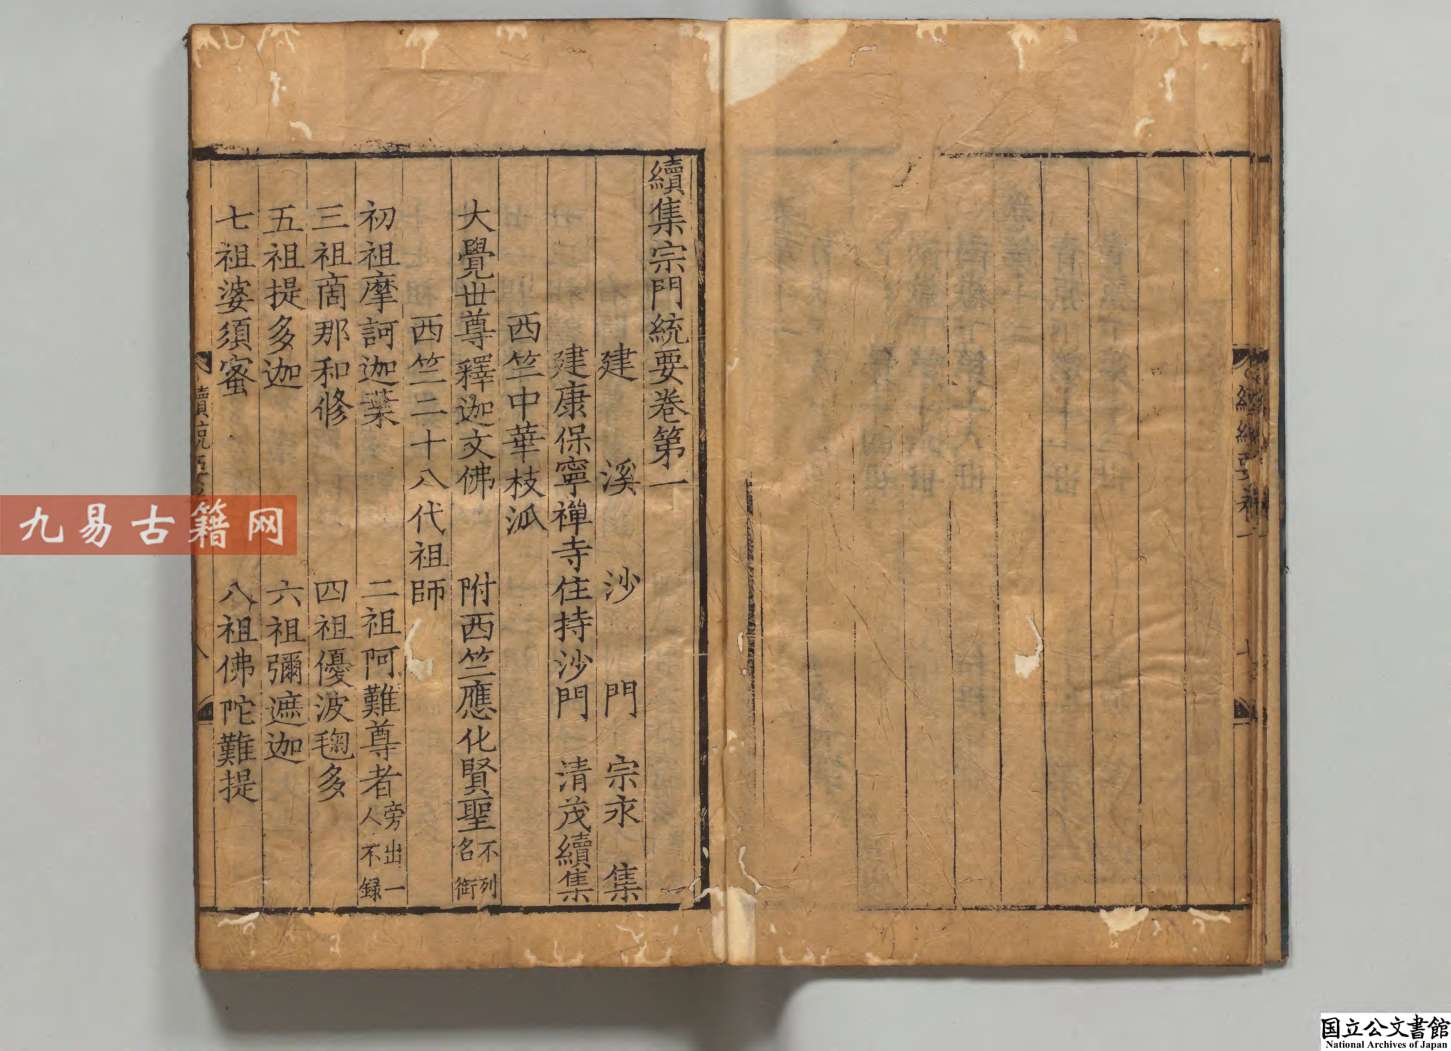 續集宗門統要卷第一
建溪沙門宗永集
建康保寧禪寺住持沙門清茂續集
西竺中華枝泒
大覺世尊釋迦文佛　附西竺應化賢聖不列名銜
西竺二十八代祖師
初祖摩訶迦葉　二祖阿難尊者旁出一人不録
三祖商那和修　四祖優波毱多
五祖提多迦　六祖彌遮迦
七祖婆須蜜　八祖佛陀難提
九易古籍网
国立公文書館
National Archives of Japan